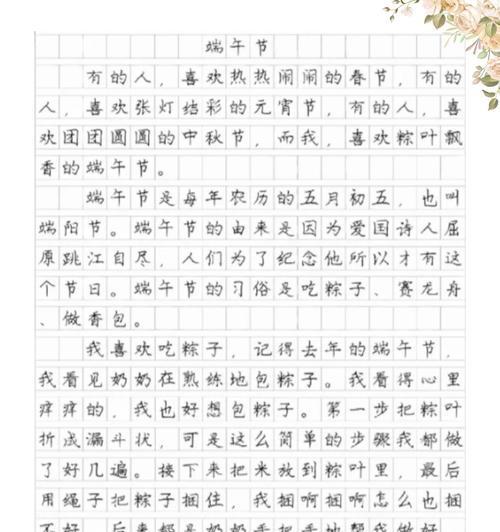 端午节
有的人，喜欢热热闹闹的春节，有的
人，喜欢张灯结彩的元宵节，有的人，喜
欢团团圆圆的中秋节，而我，喜欢粽叶飘
香的端午节。
端午节是每年农历的五月初五，也叫
端阳节。端午节的由来是因为爱国诗人屈
原跳江自尽，人们为了纪念他所以才有这
个节日。端午节的习俗是吃粽子、赛龙舟
、做香包。
我喜欢吃粽子，记得去年的端午节，
我看见奶奶在熟练地包粽子。我看得心里
痒痒的，我也好想包粽子。第一步把粽叶
折成漏斗状，可是这么简单的步骤我都做
了好几遍。接下来把米放到粽叶里，最后
用绳子把粽子捆住，我捆啊捆啊怎么也捆
不好，后来都是奶奶手把手地帮我做好